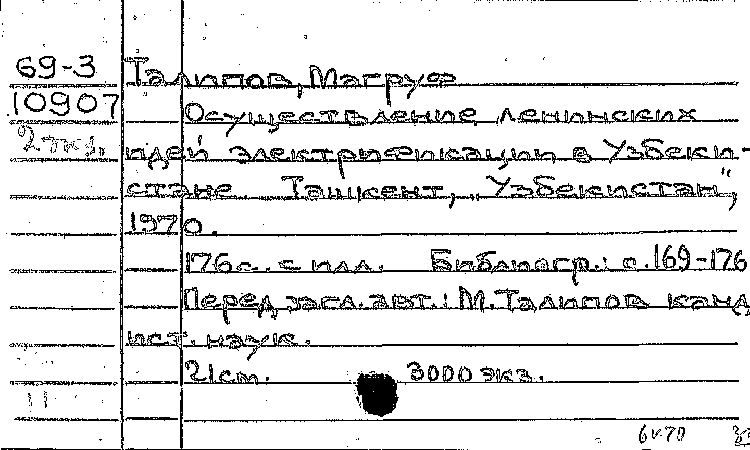 69-3 Талипов, Магруф
10907 Осуществление ленинских
2 экз. идей электрификации в Узбеки-
стане. Ташкент, "Узбекистан",
1970.
176 с. с илл. Библиогр.: с. 169-176
Перед загл. авт.: М. Талипов канд.
ист. наук.
21 см. 3000 экз.